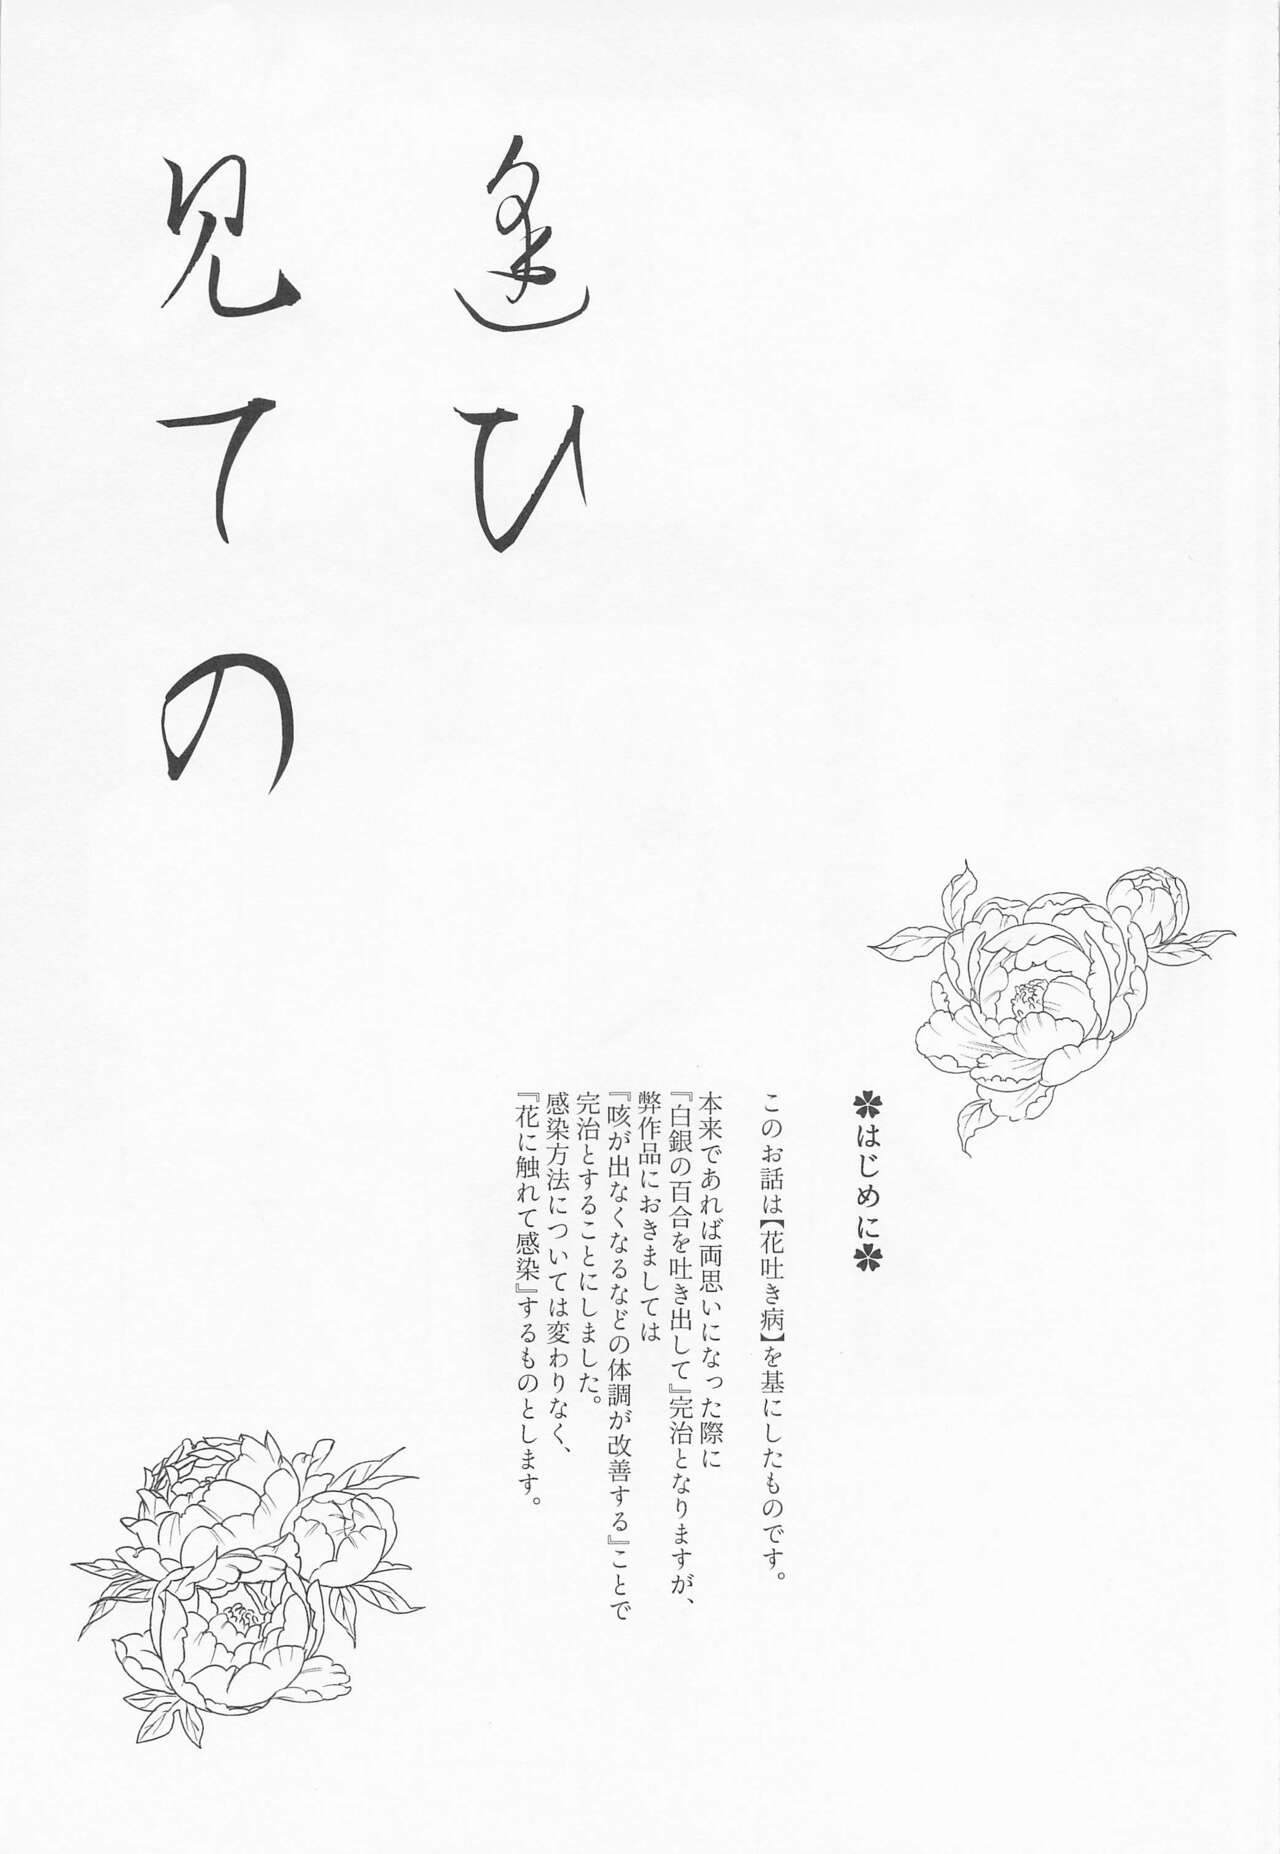 ✿はじめに✿
このお話は【花吐き病】を基にしたものです。
本来であれば両思いになった際に
『白銀の百合を吐き出して』完治となりますが、
弊作品におきましては
『咳が出なくなるなどの体調が改善する』ことで
完治とすることにしました。
感染方法については変わりなく、
『花に触れて感染』するものとします。
逢ひ
見ての